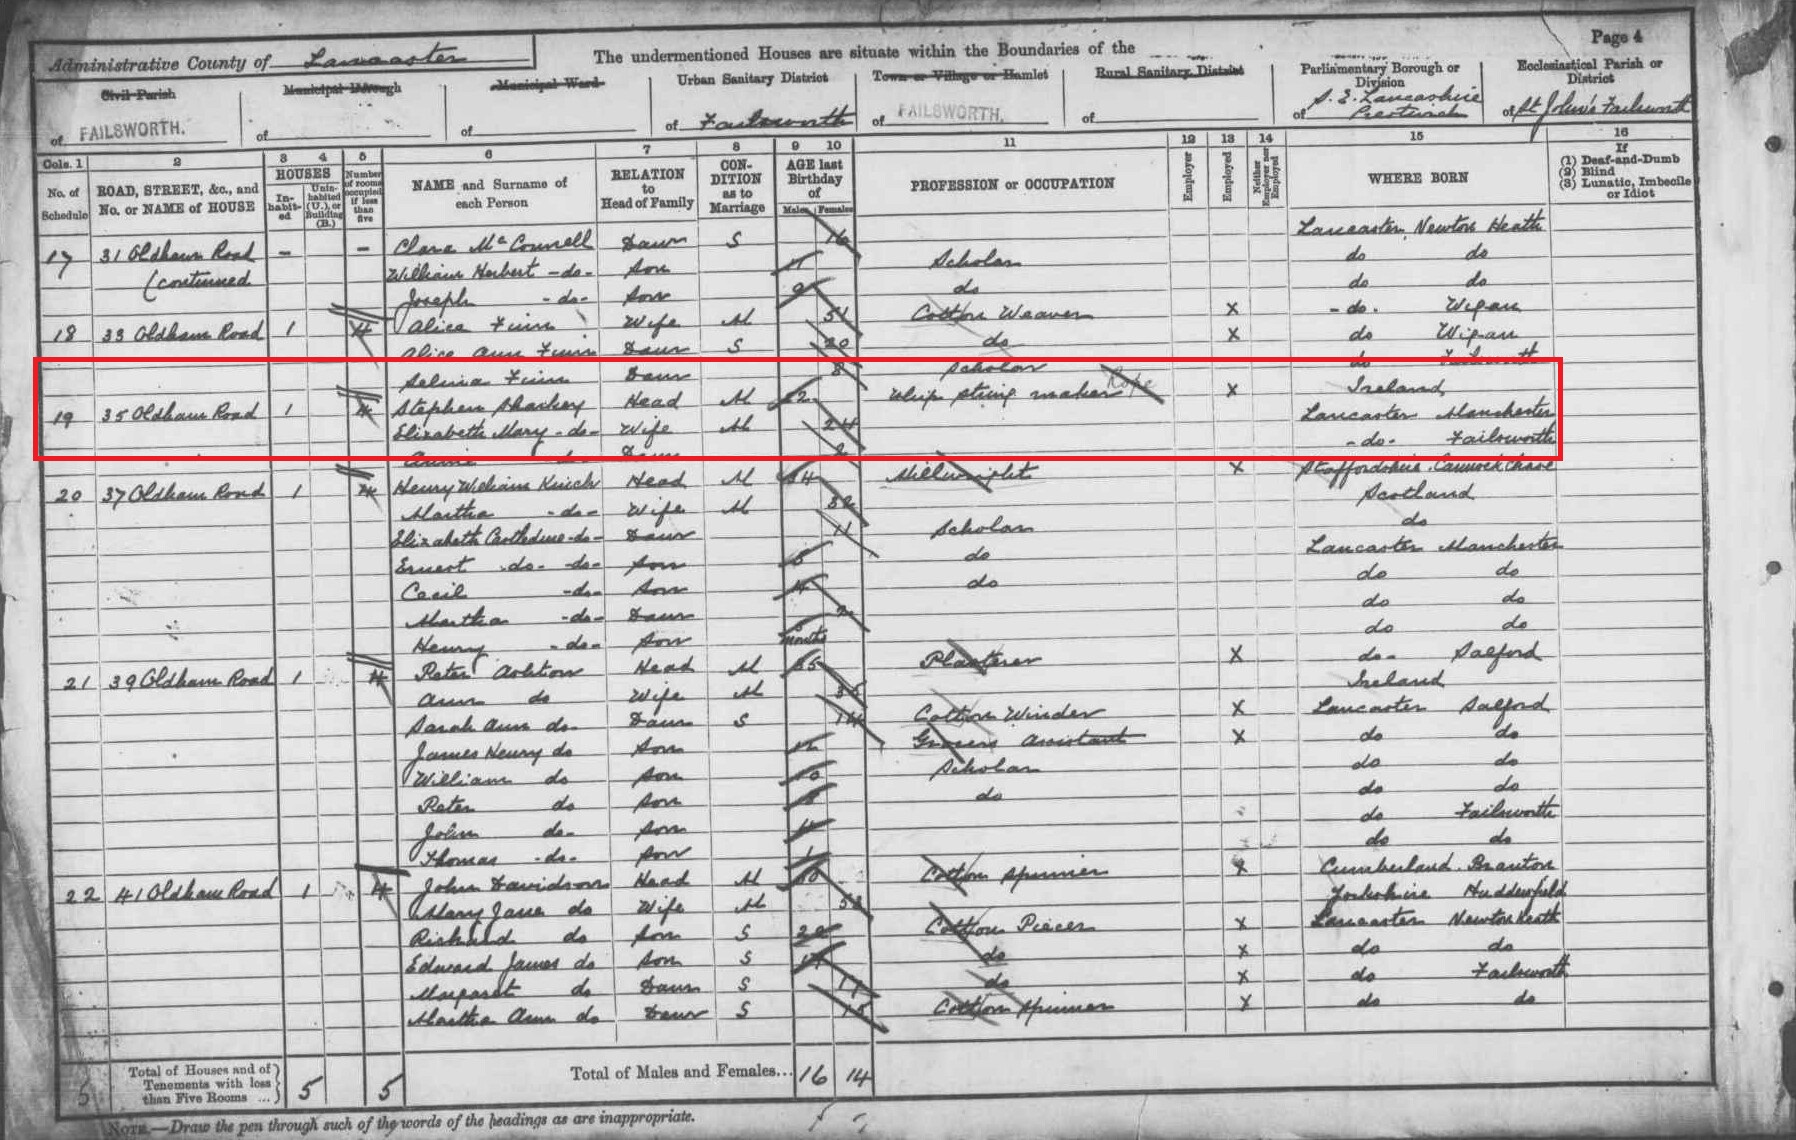 Page 4
Administrative County of Lancaster The undermentioned Houses are situate within the Boundaries of the
Civil Parish Municipal Borough Municipal Ward Urban Sanitary District Town or Village or Hamlet Rural Sanitary District Parliamentary Borough or Division Ecclesiastical Parish or District
of FAILSWORTH. of of of Failsworth of FAILSWORTH. of of S. E. Lancashire Prestwich of St John's Failsworth
Cols. 1 2 3 4 5 6 7 8 9 10 11 12 13 14 15 16
No. of Schedule ROAD, STREET, &c., and No. or NAME of HOUSE HOUSES Inhabited Uninhabited (U.), or Building (B.) Number of rooms occupied if less than five NAME and Surname of each Person RELATION to Head of Family CONDITION as to Marriage AGE last Birthday of Males Females PROFESSION or OCCUPATION Employer Employed Neither Employer nor Employed WHERE BORN If (1) Deaf-and-Dumb (2) Blind (3) Lunatic, Imbecile or Idiot
17 31 Oldham Road - - Clara McConnell Daur S 16 Lancaster Newton Heath
(continued William Herbert -do- Son 11 Scholar do do
Joseph -do- Son 9 do do do
18 33 Oldham Road 1 4 Alice Finn Wife M 51 Cotton Weaver X -do- Wigan
Alice Ann Finn Daur S 20 do X do Wigan
Selina Finn Daur 8 Scholar do Failsworth
19 35 Oldham Road 1 4 Stephen Sharkey Head M 22 Whip string maker Rope X Ireland
Elizabeth Mary -do- Wife M 24 Lancaster Manchester
Annie -do- Daur 2 -do- Failsworth
20 37 Oldham Road 1 4 Henry William Kinch Head M 34 Millwright X Staffordshire Cannock Chase
Martha -do- Wife M 32 Scotland
Elizabeth -do- Daur 11 Scholar do
Ernest -do- -do- Son do Lancaster Manchester
Cecil -do- Son 4 do do do
Martha -do- Daur 2 do do
Henry -do- Son months do do
21 39 Oldham Road 1 4 Peter Ashton Head M 35 Plasterer X do- Salford
Ann do Wife M 35 Ireland
Sarah Ann do- Daur S 14 Cotton Winder X Lancaster Salford
James Henry do Son 12 Grocers Assistant X do do
William do Son 10 Scholar do do
Peter do Son 8 do do do
John do- Son 4 do Failsworth
Thomas -do- Son 1 do do
22 41 Oldham Road 1 4 John Davidson Head M 50 Cotton Spinner X Cumberland
Mary Jane do Wife M 52 Yorkshire Huddersfield
Richard do Son S 20 Cotton Piecer X Lancaster Newton Heath
Edward James do Son S 19 do X do do
Margaret do Daur S 17 do X do Failsworth
Martha Ann do Daur S 15 Cotton Spinner X do do
5 Total of Houses and of Tenements with less than Five Rooms ... 5 5 Total of Males and Females... 16 14
NOTE.—Draw the pen through such of the words of the headings as are inappropriate.